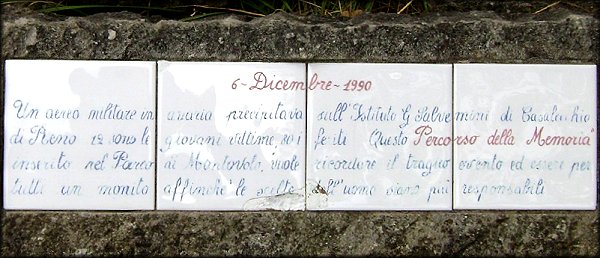 6-Dicembre-1990
Un aereo militare in avaria precipitava sull'Istituto G. Salvemini di Casalecchio
di Reno 12 sono le giovani vittime, 80 i feriti Questo "Percorso della Memoria"
inserito nel Parco di Montevola, vuole ricordare il tragico evento ed essere per
tutti un monito affinché le scelte dell'uomo siano più responsabili